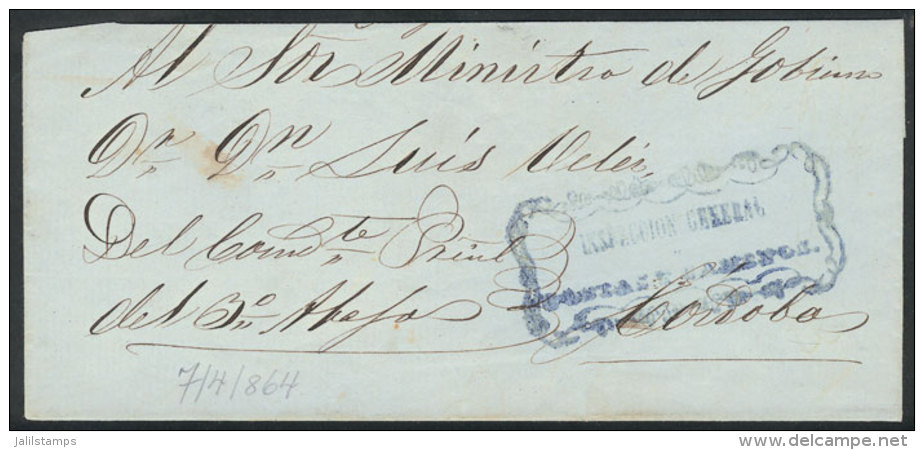 Al Sor Ministro de Gobierno
Dr. Dn. Luis Velez
Del Comdte Prinl
del 3o Abajo Córdoba
INSPECCION GENERAL
POSTAS Y CAMINOS.
7/4/864
jalilstamps
www.delcampe.net